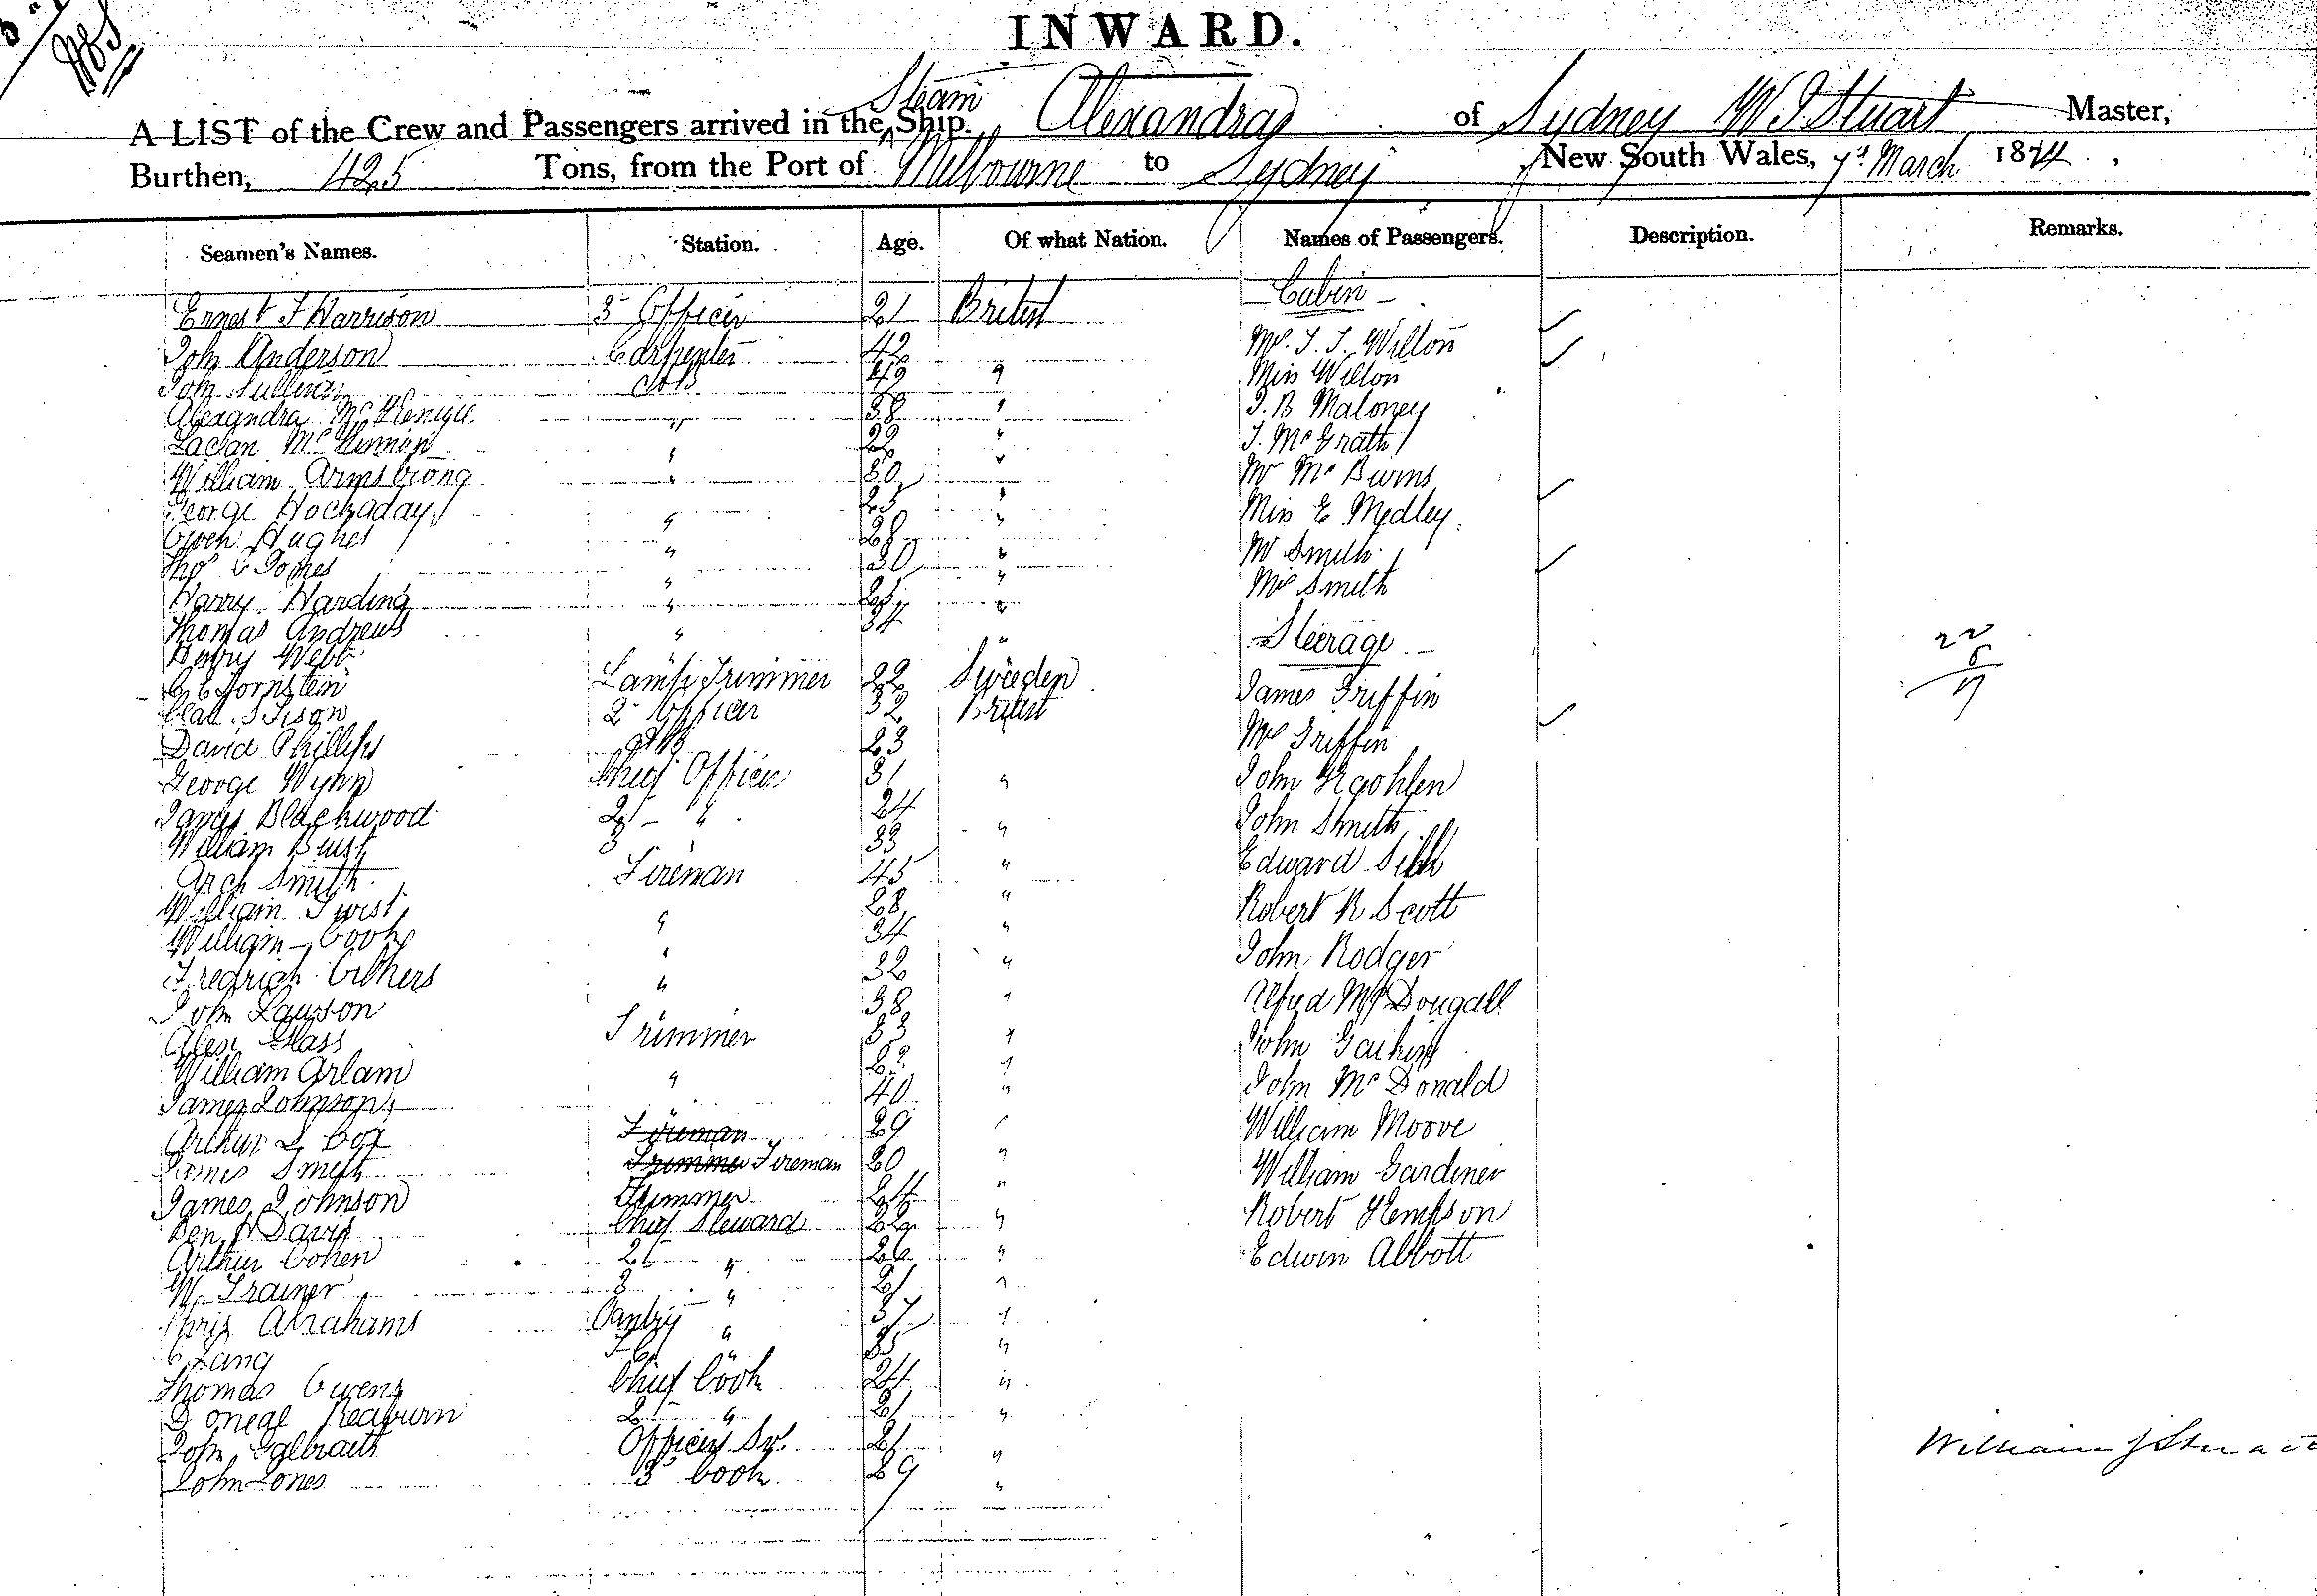 INWARD.
A LIST of the Crew and Passengers arrived in the Steam Ship. Alexandra of Sydney W J Stuart Master,
Burthen, 425 Tons, from the Port of Melbourne to Sydney New South Wales, 7th March 1874,
Seamen's Names. Station. Age. Of what Nation. Names of Passengers. Description. Remarks.
Cabin
Ernest J Harrison 3 Officer 21 British
John Anderson Carpenter 42 Mr. J. J. Wilton
John Sullivan 42 " Miss Wilton
Alexandra McKenzie " 38 " J. B Maloney
Laclan McKinnon 22 " J. McGrath
William Armstrong " 30 " Mr McBurns
George Hockaday " 25 " Miss E Medley
Owen Hughes " 28 " Mr Smith
Thos Jones " 30 " Mrs Smith
Harry Harding " "
Thomas Andrews " 34 " Steerage
Henry Webb
Lamp Trimmer 22 Sweden James Griffin
2 Officer 32 British
David Phillips 23 Mrs Griffin
George Wynn Chief Officer 31 " John
James Blackwood 2 " 24 John Smith
William 3 " 33 "
Arch Smith Fireman 45 " Edward
William Twist " 28 " Robert R Scott
William Cook " 34 "
Fredrick " 32 " John Rodger
John Lawson " 38 " Alfred McDougall
Alex Glass Trimmer 33 " John
William Arlam " 22 "
James Johnson " 40 " John McDonald
Arthur J Cox Fireman 29 " William Moore
James Smith Trimmer Fireman 20 " William Gardener
James Johnson Trimmer 24 "
Ben H Davis Chief Steward 22 " Robert Hempson
Arthur Cohen 2 " " Edwin Abbott
W. Trainer 3 " 21 "
Abrahams Pantry " 37 "
C Lang " 35 "
Thomas Owens Chief Cook 24 "
2 " 21 "
John Galbraith Officers Sv. 21 "
John Jones 3 Cook 29 "
22
William J Stuart